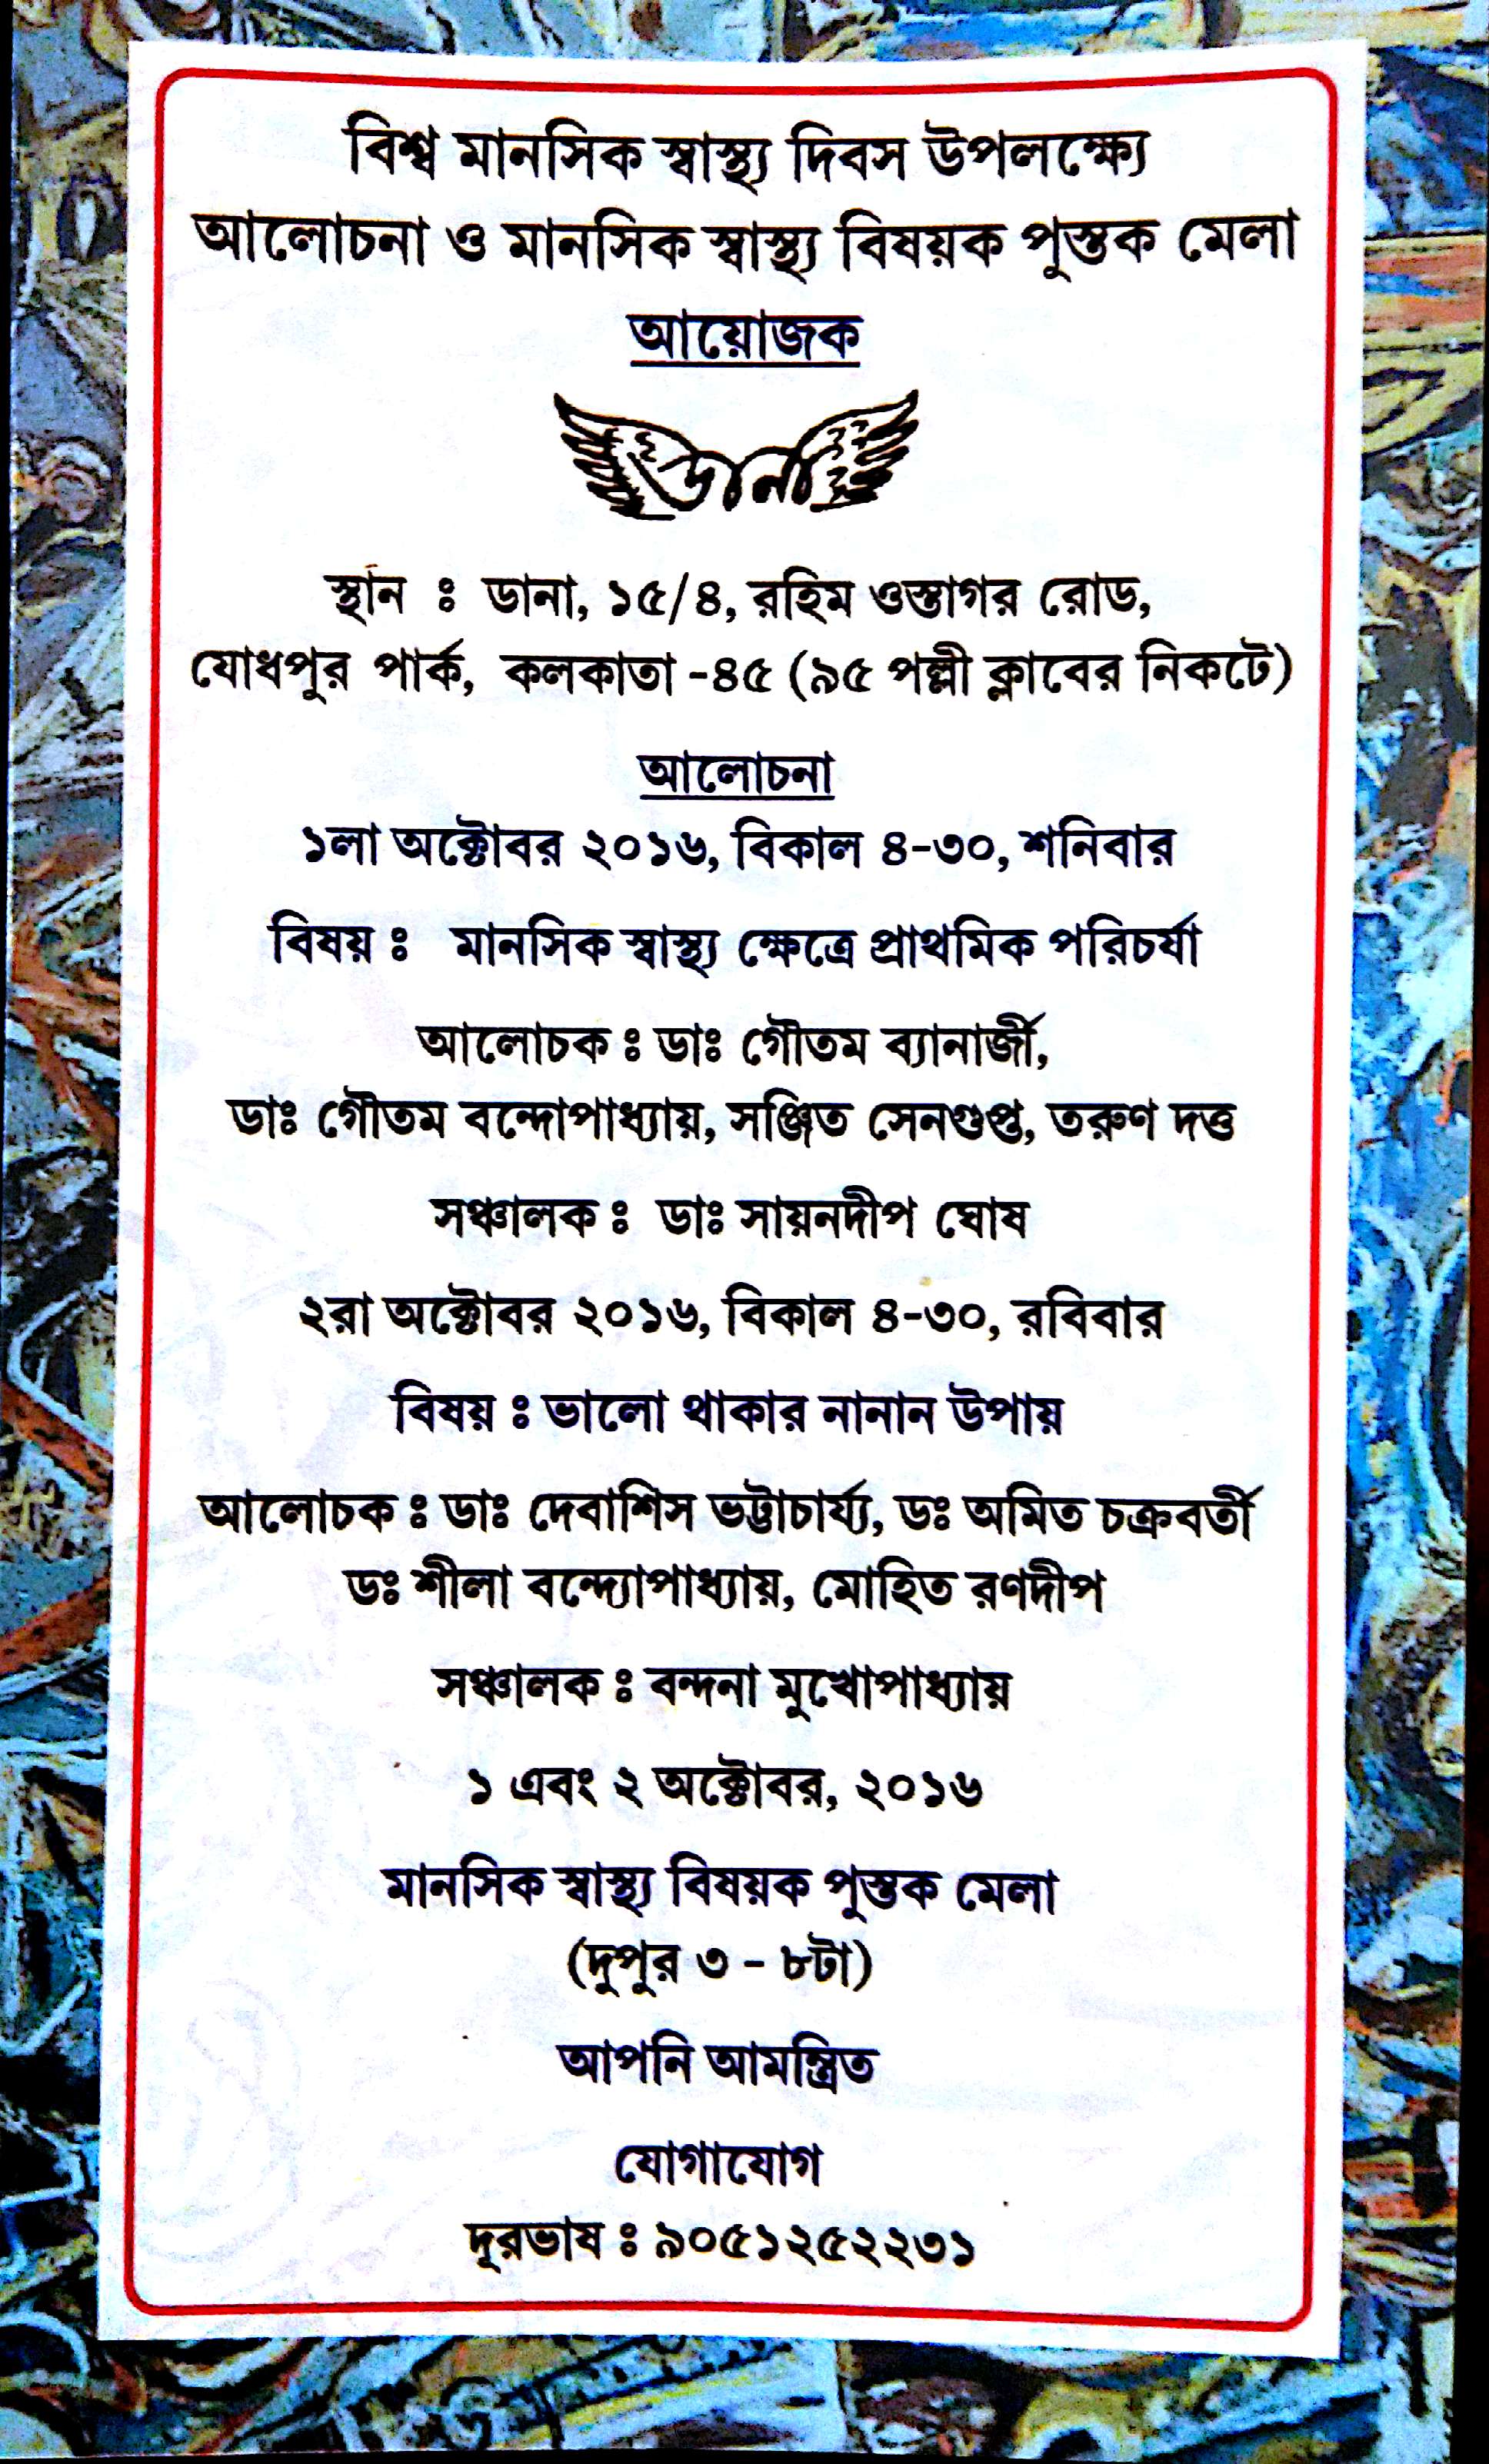 বিশ্ব মানসিক স্বাস্থ্য দিবস উপলক্ষ্যে
আলোচনা ও মানসিক স্বাস্থ্য বিষয়ক পুস্তক মেলা
আয়োজক
ডানা
স্থান ঃ ডানা, ১৫/৪, রহিম ওস্তাগর রোড,
যোধপুর পার্ক, কলকাতা -৪৫ (৯৫ পল্লী ক্লাবের নিকটে)
আলোচনা
১লা অক্টোবর ২০১৬, বিকাল ৪-৩০, শনিবার
বিষয় ঃ মানসিক স্বাস্থ্য ক্ষেত্রে প্রাথমিক পরিচর্যা
আলোচক ঃ ডাঃ গৌতম ব্যানার্জী,
ডাঃ গৌতম বন্দোপাধ্যায়, সঞ্জিত সেনগুপ্ত, তরুণ দত্ত
সঞ্চালক ঃ ডাঃ সায়নদীপ ঘোষ
২রা অক্টোবর ২০১৬, বিকাল ৪-৩০, রবিবার
বিষয় ঃ ভালো থাকার নানান উপায়
আলোচক ঃ ডাঃ দেবাশিস ভট্টাচার্য্য, ডঃ অমিত চক্রবর্তী
ডঃ শীলা বন্দ্যোপাধ্যায়, মোহিত রণদীপ
সঞ্চালক ঃ বন্দনা মুখোপাধ্যায়
১ এবং ২ অক্টোবর, ২০১৬
মানসিক স্বাস্থ্য বিষয়ক পুস্তক মেলা
(দুপুর ৩ - ৮টা)
আপনি আমন্ত্রিত
যোগাযোগ
দূরভাষ ঃ ৯০৫১২৫২২৩১